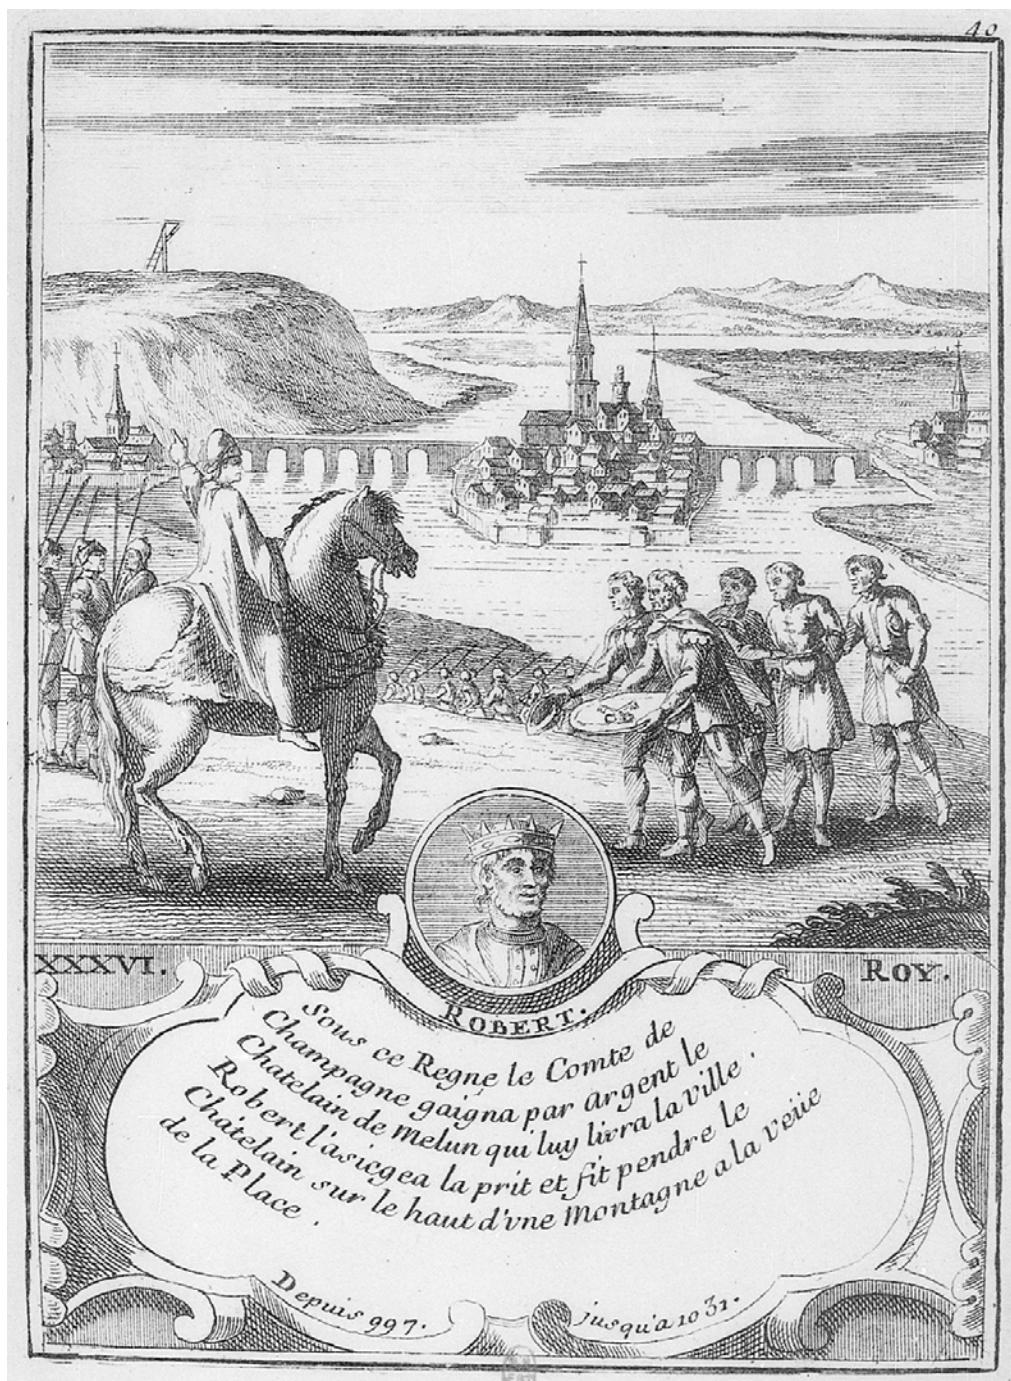 40
XXXVI. ROY.
ROBERT.
Sous ce Regne le Comte de
Champagne gaigna par argent le
Chatelain de Melun qui luy livra la ville.
Robert l'asicgea la prit et fit pendre le
Chatelain sur le haut d'vne Montagne a la veüe
de la Place.
Depuis 997. jusqu'a 1031.